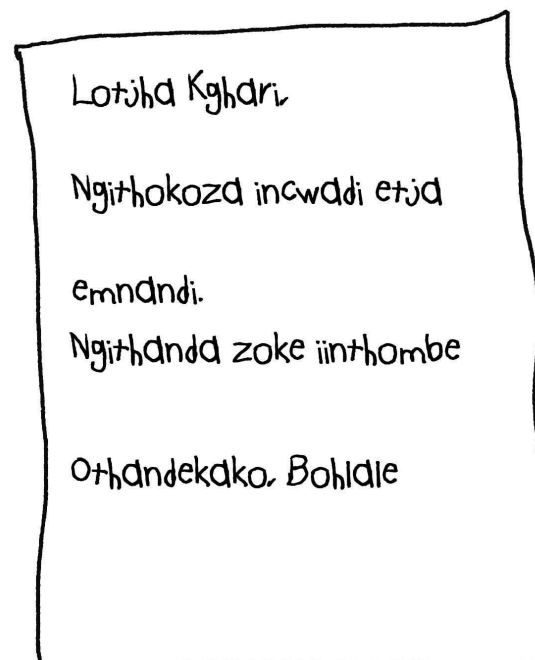 Lotjha Kghari,
Ngithokoza incwadi etja
emnandi.
Ngithanda zoke iinthombe
Othandekako, Bohlale